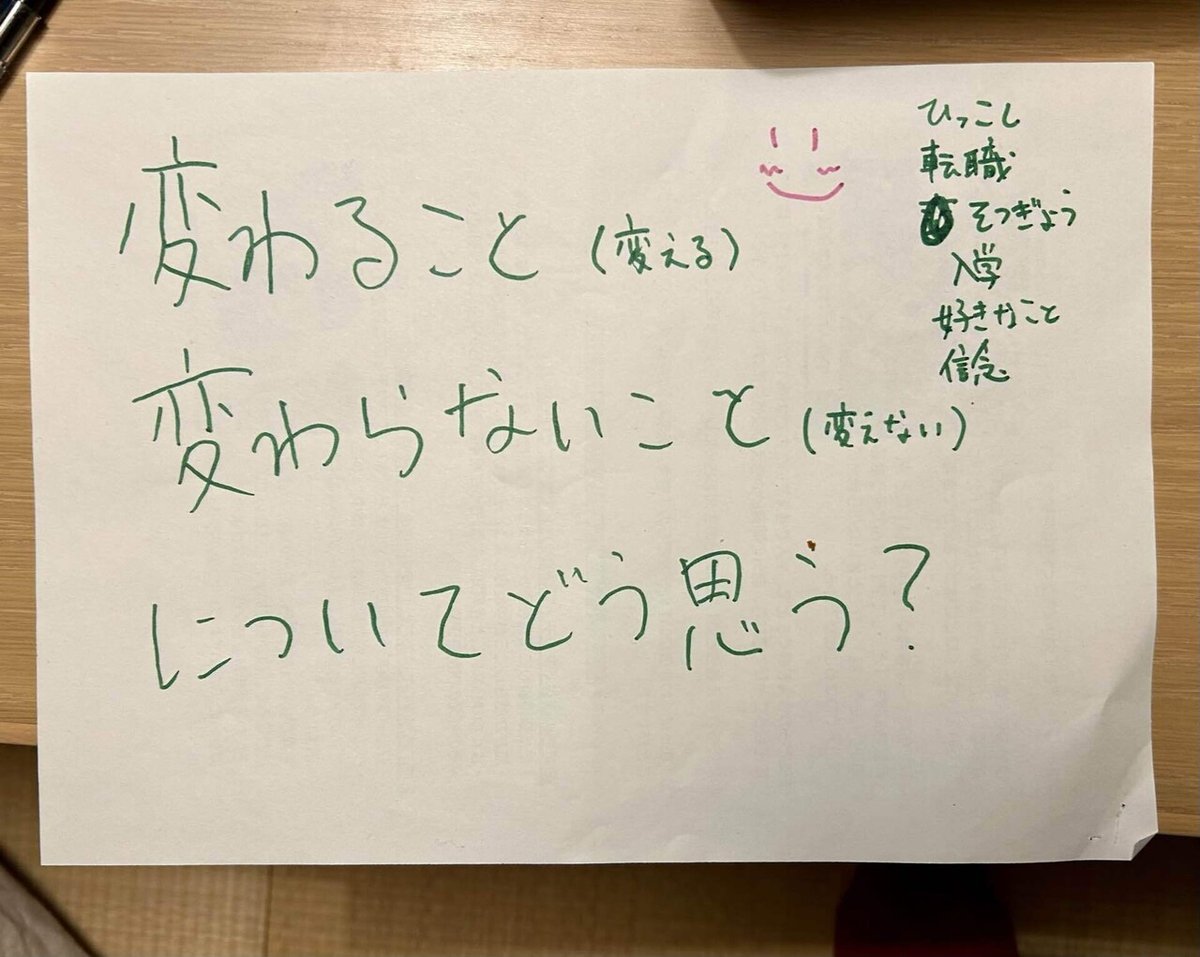 変わること (変える)
変わらないこと (変えない)
についてどう思う?
ひっこし
転職
そつぎょう
入学
好きなこと
信念